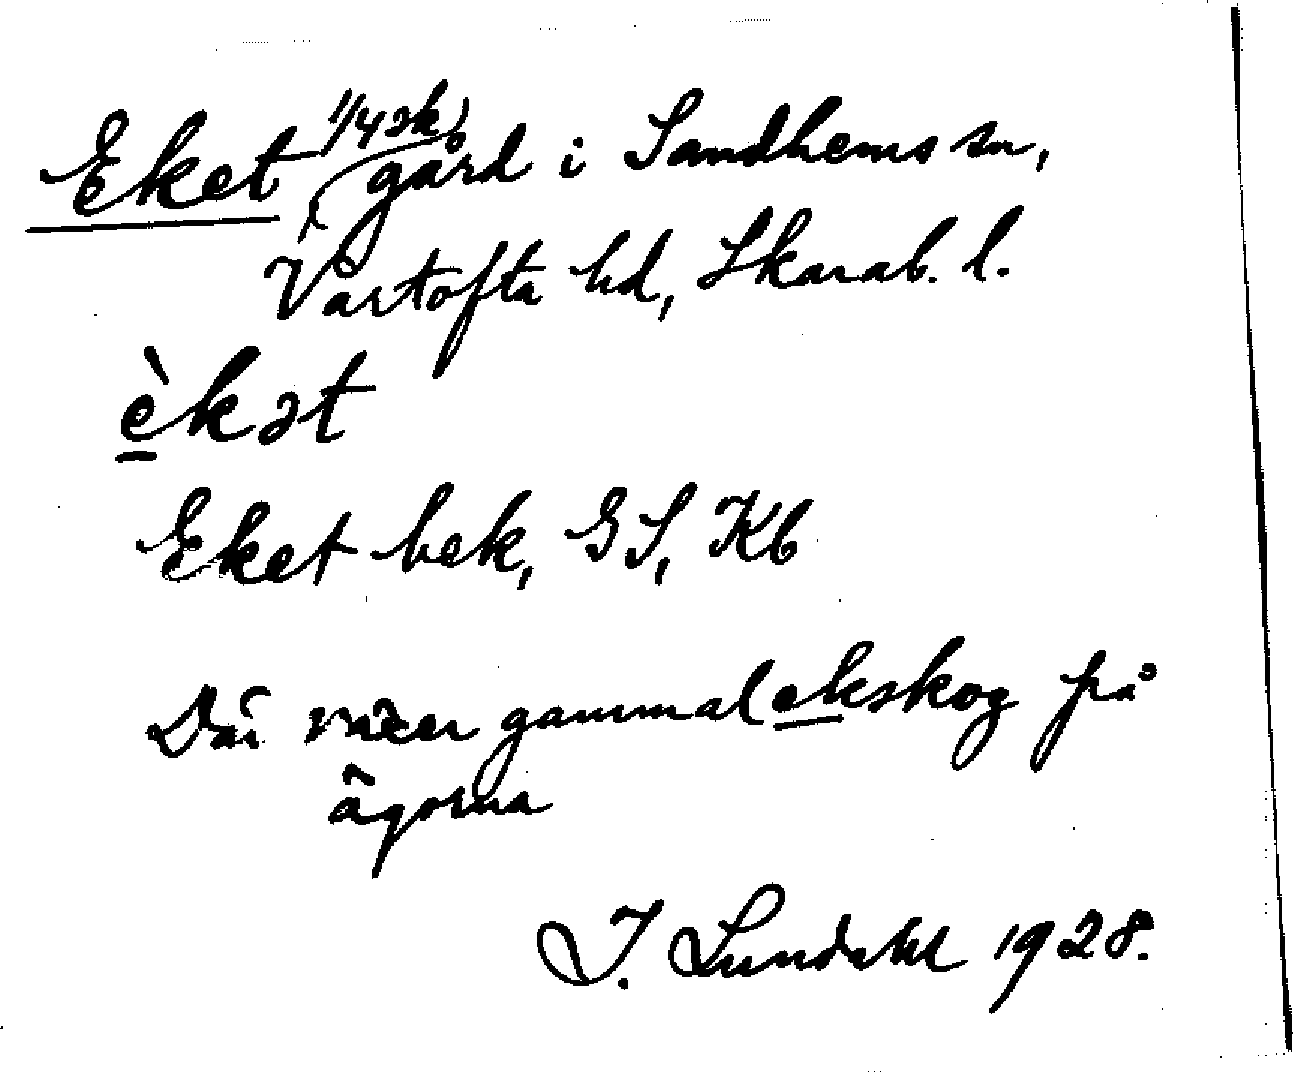 Eket 1/4 sk, gård i Sandhems sn,
Vartofta hd, Skarab. l.
èkət
Eket bek, GS, Kb
Där växer gammal ekskog på
ägorna
I. Lundahl 1928.